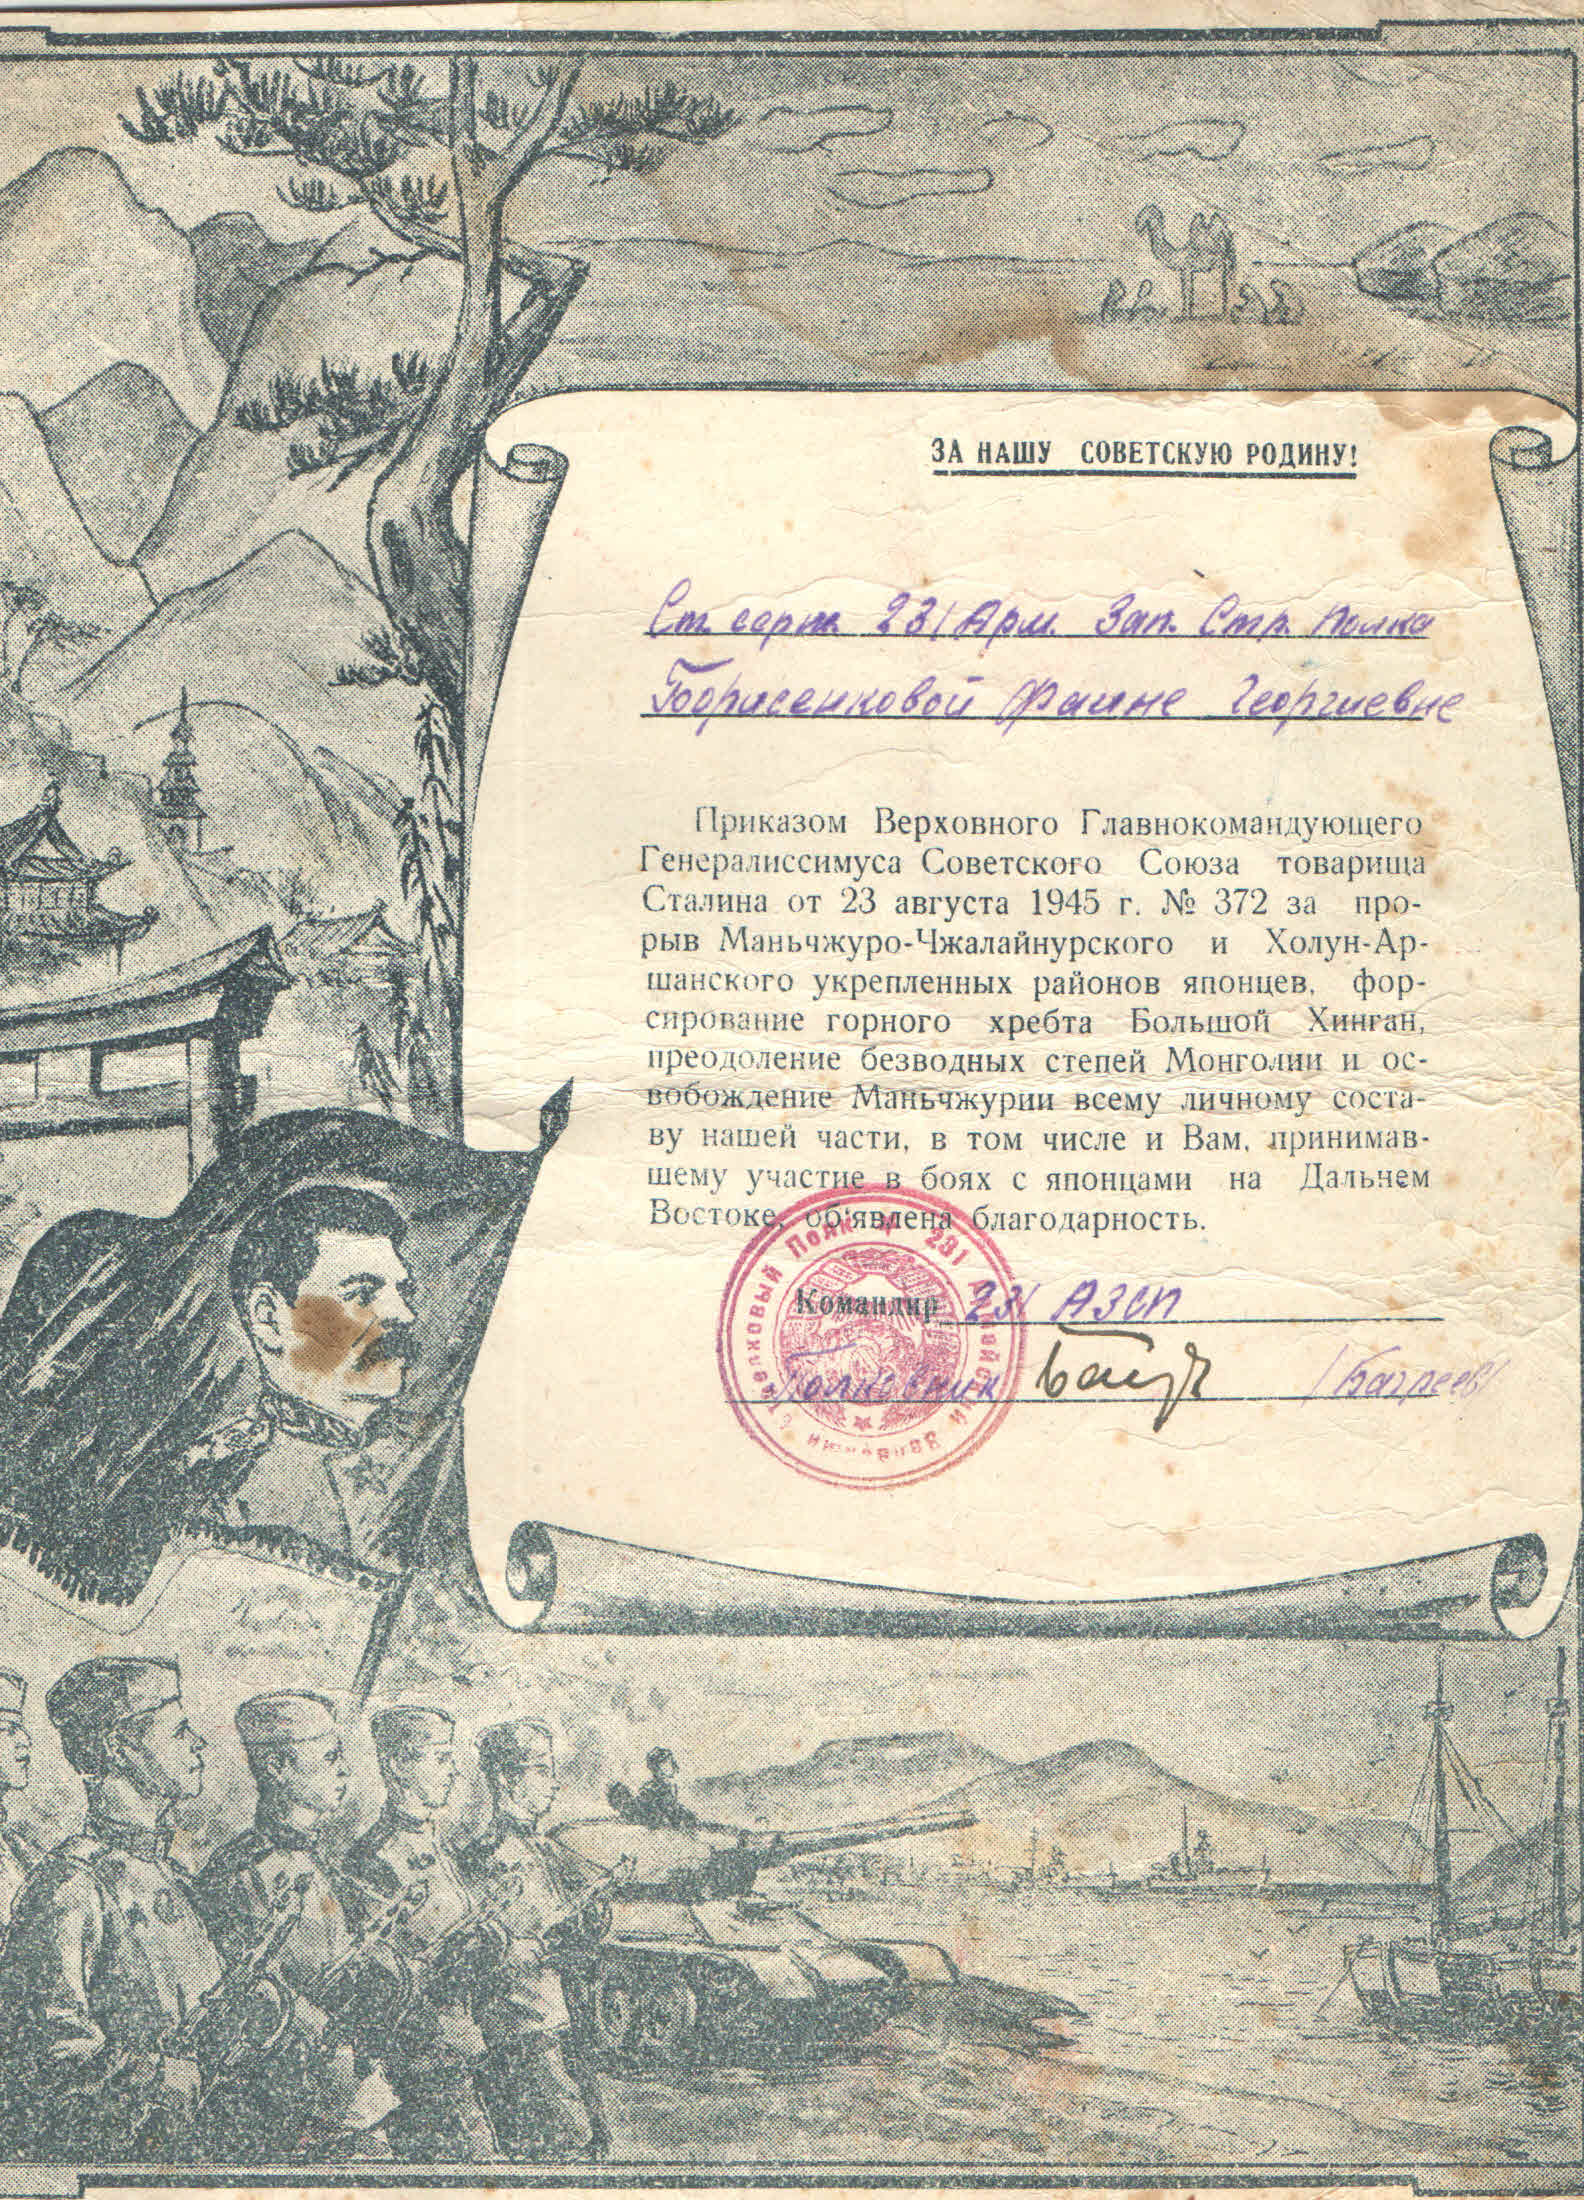 ЗА НАШУ СОВЕТСКУЮ РОДИНУ!
Ст. серж. 231 Арм. Зап. Стр. Полка
Борисенковой Фаине Георгиевне
Приказом Верховного Главнокомандующего
Генералиссимуса Советского Союза товарища
Сталина от 23 августа 1945 г. № 372 за про-
рыв Маньчжуро-Чжалайнурского и Холун-Ар-
шанского укрепленных районов японцев, фор-
сирование горного хребта Большой Хинган,
преодоление безводных степей Монголии и ос-
вобождение Маньчжурии всему личному соста-
ву нашей части, в том числе и Вам, принимав-
шему участие в боях с японцами на Дальнем
Востоке, об'явлена благодарность.
Командир 231 АЗСП
Полковник /Багреев/
231 Армейский Запасный Стрелковый Полк